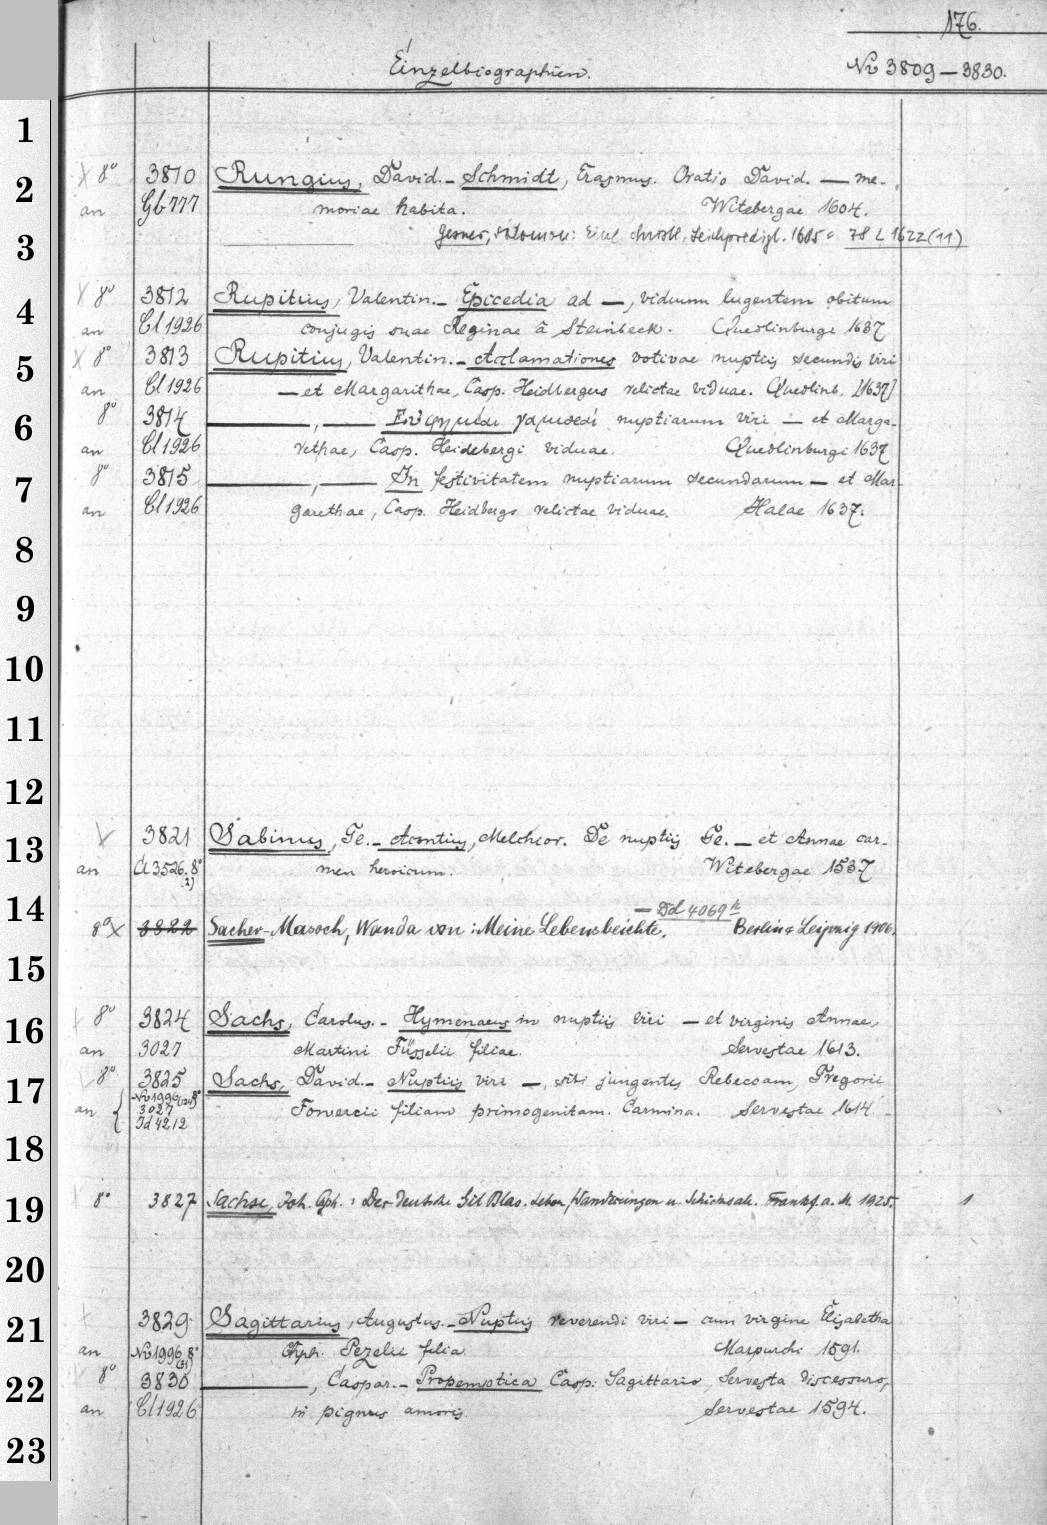 176.
Einzelbiographien. Nv 3809-3830.
1
X 8° 3810 Rungius, David. - Schmidt, Erasmus. Oratio David. — me-
2
an Gb 777 moriae habita. Witebergae 1604.
3
Gesner, Salomon: Eine christl. Leichpredigt. 1605 = 78 L 1622 (11)
X 8° 3812 Rupitius, Valentin. - Epicedia ad —, viduum lugentem obitum
4
an Cl 1926 conjugis suae Reginae â Steinbeck. Quedlinburgi 1637
X 8° 3813 Rupitius, Valentin. - Acclamationes votivae nuptiis secundis viri
5
an Cl 1926 — et Margarithae, Casp. Heidbergers relictae viduae. Quedlinb. [1637]
8° 3814 —, — γαμικαὶ nuptiarum viri — et Marga-
6
an Cl 1926 rethae, Casp. Heidebergi viduae. Quedlinburgi 1637
8° 3815 —, — In festivitatem nuptiarum secundarum — et Mar
7
an Cl 1926 garethae, Casp. Heidbergs relictae viduae. Halae 1637.
8
9
10
11
12
3821 Sabinus, Ge. - Acontius, Melchior. De nuptiis Ge. — et Annae car-
13
an Ci 3526, 8° (2) men heroicum. Witebergae 1537
14
— Dd 4069 k
8° X 3822 Sacher-Masoch, Wanda von: Meine Lebensbeichte. Berlin & Leipzig 1906.
15
8° 3824 Sachs, Carolus. - Hymenaeus in nuptiis viri — et virginis Annae,
16
an 3027 Martini Füsselii filiae. Servestae 1613.
8° 3825 Sachs, David. - Nuptiis viri —, sibi jungentis Rebeccam, Gregorii
17
an { Nv 1996 8° filiam primogenitam. Carmina. Servestae 1614
3027
Id 4212
18
8° 3827 Sachse, Joh. Cph.: Der deutsche Gil Blas. Leben, Wanderungen u. Schicksale. Frankf. a. M. 1925. 1
19
20
3829 Sagittarius, Augustus. - Nuptiis reverendi viri — cum virgine Elisabetha
21
an Nv 1996 8° (31) Chph. Pezelii filia. Marpurchi 1591.
8° 3830 —, Caspar. - Propemptica Casp. Sagittario, Servesta discessuro,
22
an Cl 1926 in pignus amoris. Servestae 1594.
23